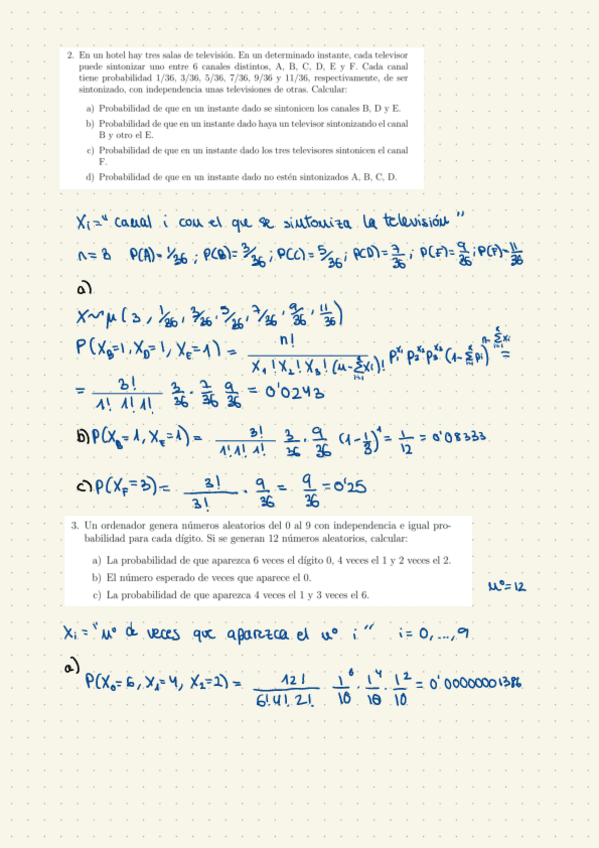 2. En un hotel hay tres salas de televisión. En un determinado instante, cada televisor
puede sintonizar uno entre 6 canales distintos, A, B, C, D, E y F. Cada canal
tiene probabilidad 1/36, 3/36, 5/36, 7/36, 9/36 y 11/36, respectivamente, de ser
sintonizado, con independencia unas televisiones de otras. Calcular:
a) Probabilidad de que en un instante dado se sintonicen los canales B, D y E.
b) Probabilidad de que en un instante dado haya un televisor sintonizando el canal
B y otro el E.
c) Probabilidad de que en un instante dado los tres televisores sintonicen el canal
F.
d) Probabilidad de que en un instante dado no estén sintonizados A, B, C, D.
Xi="canal i con el que se sintoniza la televisión"
n=3 P(A)=1/36; P(B)=3/36; P(C)=5/36; P(D)=7/36; P(E)=9/36; P(F)=11/36
a)
X~μ(3, 1/36, 3/36, 5/36, 7/36, 9/36, 11/36)
P(X_B=1, X_D=1, X_E=1) = n! / (X₁! X₂! X₃! (n-Σxi)!) P₁^x₁ P₂^x₂ P₃^x₃ (1-Σpi)^(n-Σxi) =
= 3!/(1! 1! 1!) 3/36 · 7/36 9/36 = 0'0243
b) P(X_B=1, X_E=1) = 3!/(1! 1! 1!) 3/36 · 9/36 (1-1/3)^1 = 1/12 = 0'08333
c) P(X_F=3) = 3!/3! · 9/36 = 9/36 = 0'25
3. Un ordenador genera números aleatorios del 0 al 9 con independencia e igual pro-
babilidad para cada dígito. Si se generan 12 números aleatorios, calcular:
a) La probabilidad de que aparezca 6 veces el dígito 0, 4 veces el 1 y 2 veces el 2.
b) El número esperado de veces que aparece el 0.
c) La probabilidad de que aparezca 4 veces el 1 y 3 veces el 6.
nº=12
Xi = "nº de veces que aparezca el nº i" i=0,...,9
a)
P(X₀=6, X₁=4, X₂=2) = 12!/(6! 4! 2!) 1/10^6 · 1/10^4 · 1/10^2 = 0'00000001386